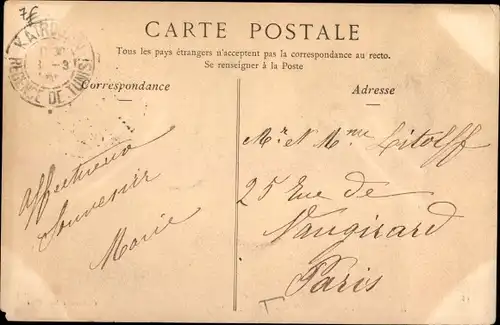 7€
CARTE POSTALE
Tous les pays étrangers n'acceptent pas la correspondance au recto.
Se renseigner à la Poste
KAIRO
REGENCE DE TUNIS
Correspondance
Affectueux
Souvenir
Marie
Adresse
Mr et Mme Litolff
25 Rue de
Vaugirard
Paris